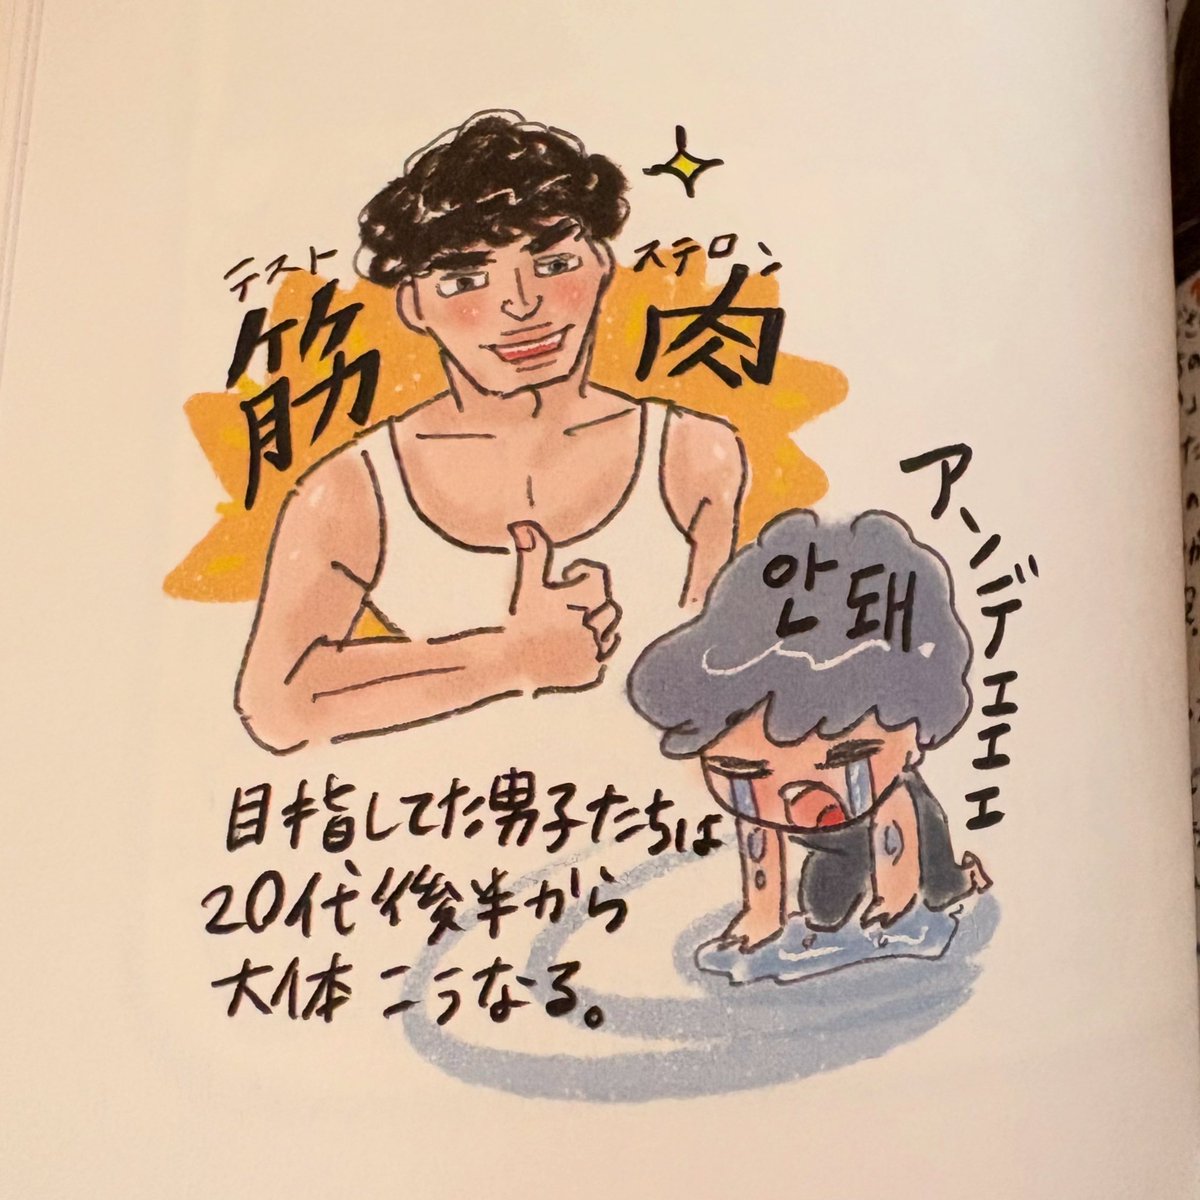 テスト
筋
ステロン
肉
アンデエエエ
안돼
目指してた男子たちは
20代後半から
大体こうなる。